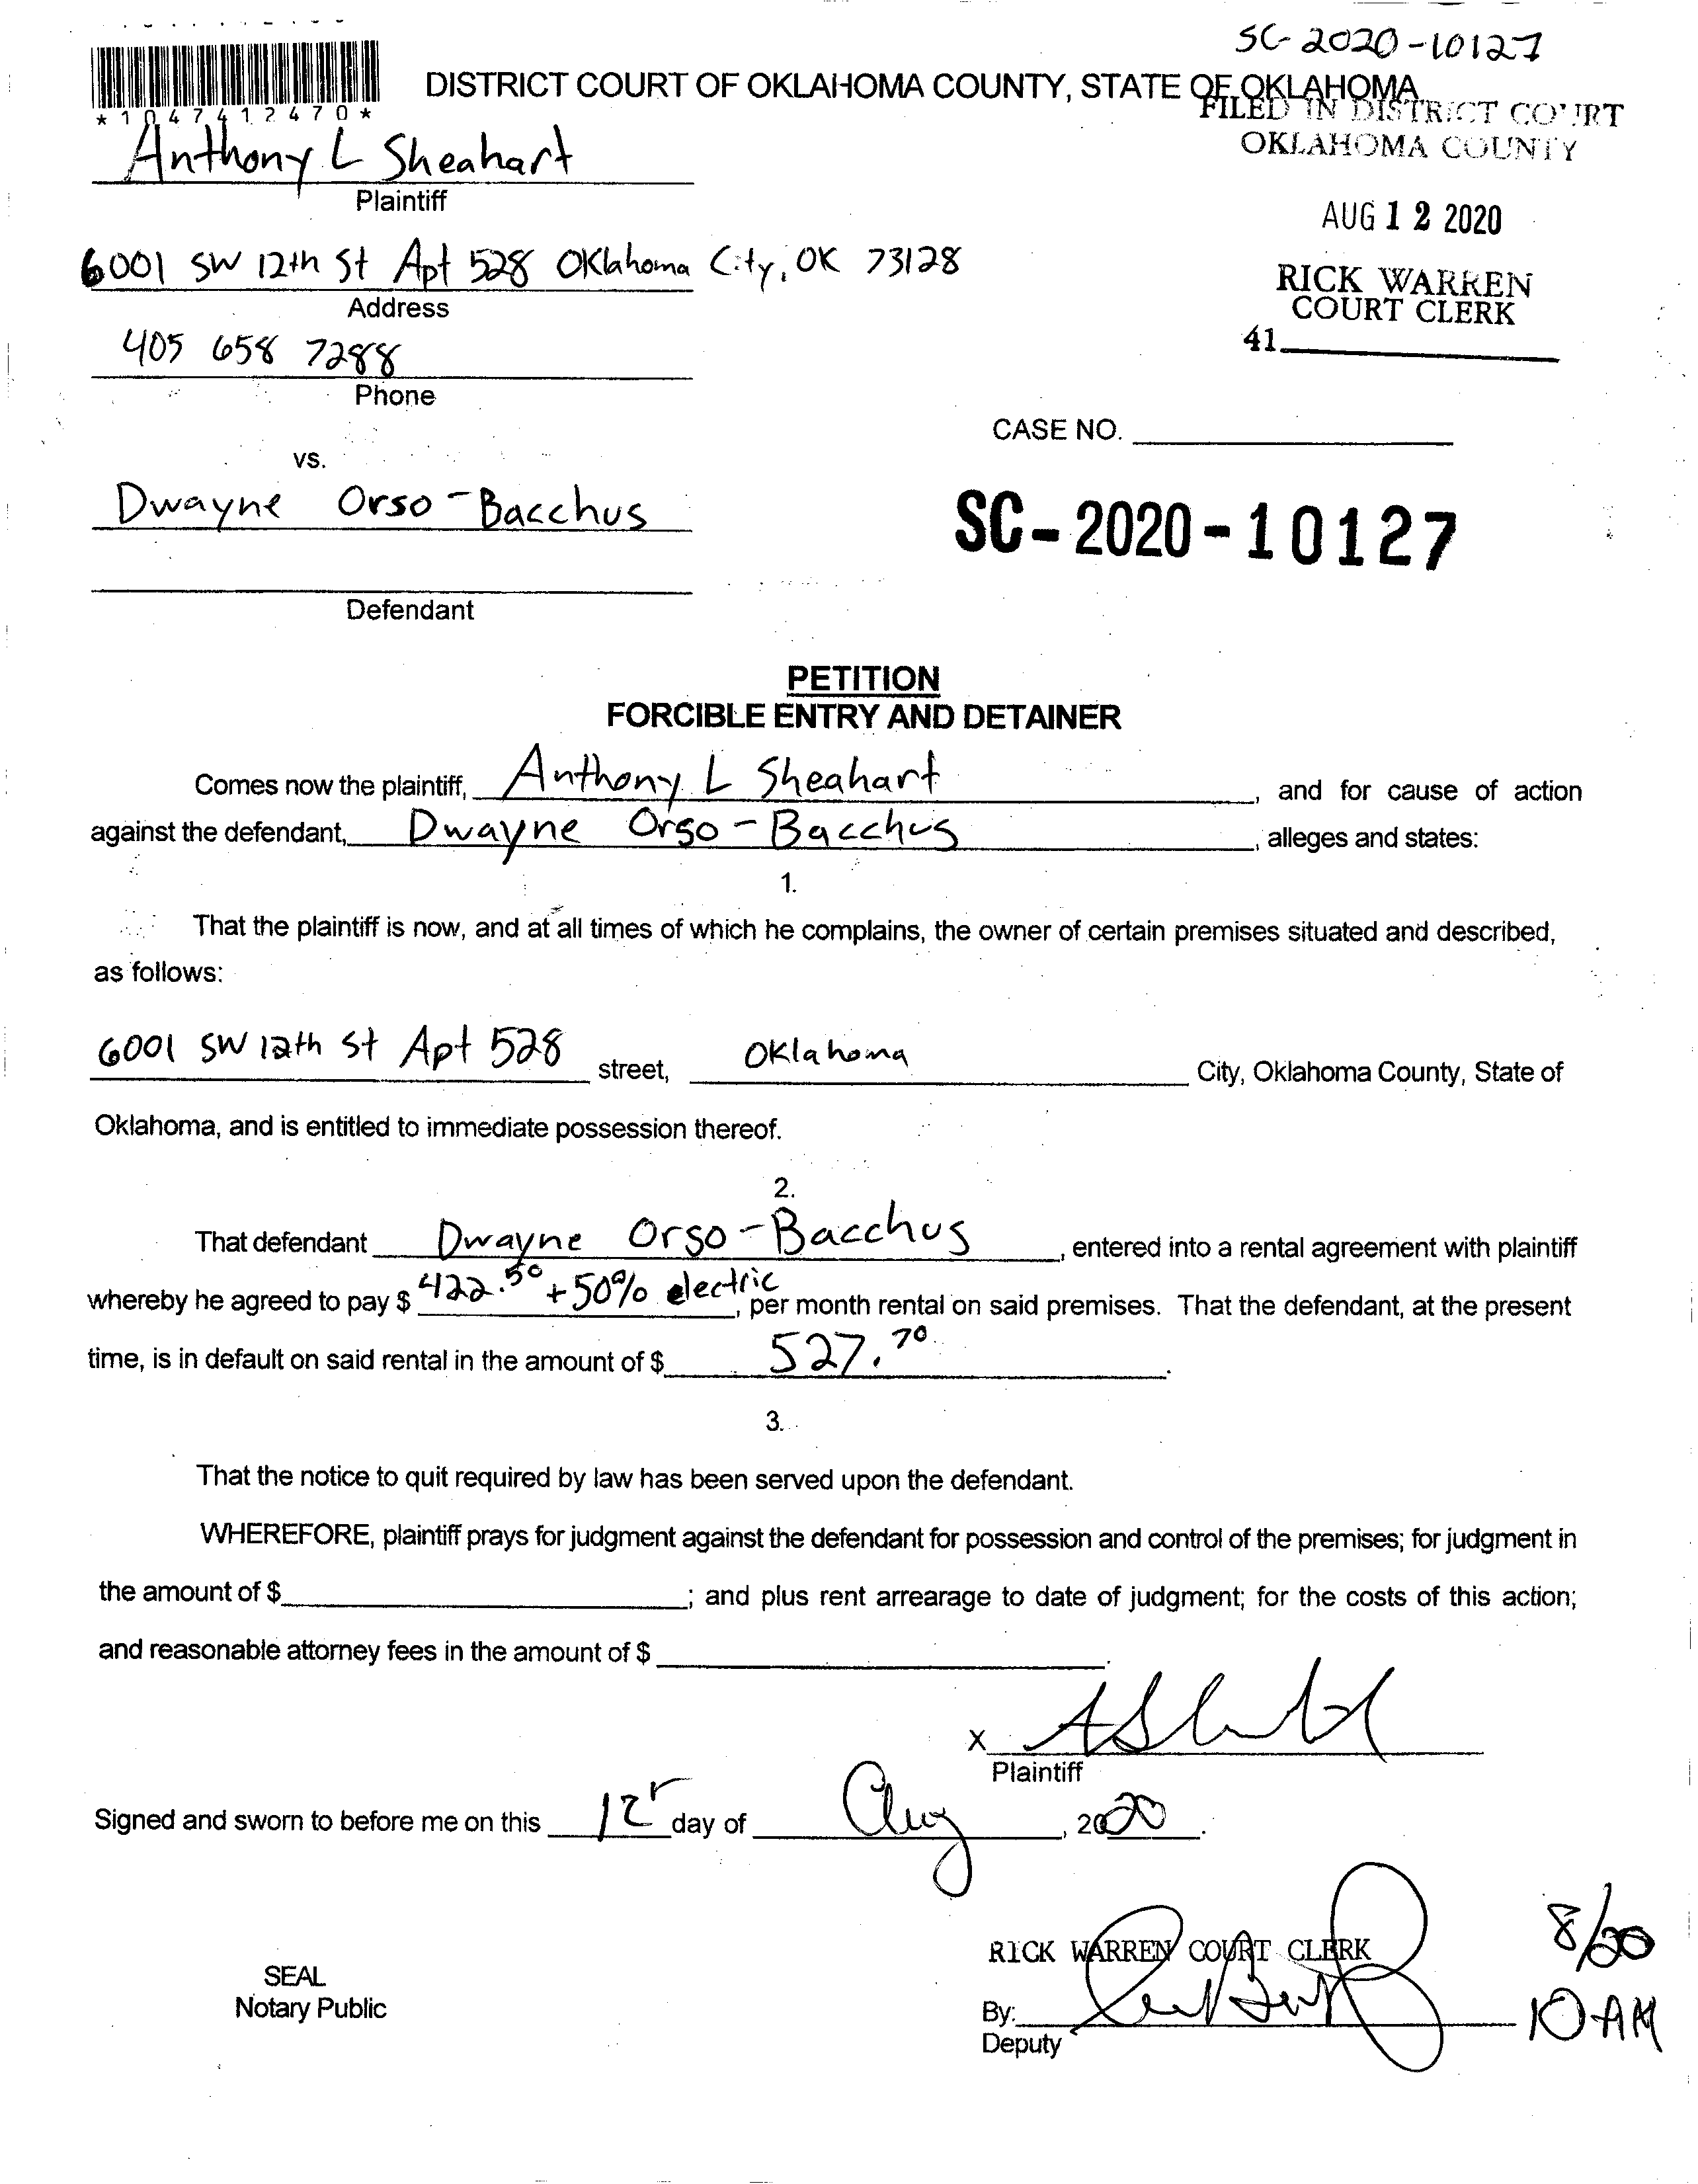 SC-2020-10127
DISTRICT COURT OF OKLAHOMA COUNTY, STATE OF OKLAHOMA
*1047412470*
FILED IN DISTRICT COURT
OKLAHOMA COUNTY
Anthony L Sheahart
Plaintiff
AUG 12 2020
6001 SW 12th St Apt 528 Oklahoma City, OK 73128
Address
RICK WARREN
COURT CLERK
41
405 658 7288
Phone
CASE NO.
vs.
Dwayne Orso-Bacchus
SC-2020-10127
Defendant
PETITION
FORCIBLE ENTRY AND DETAINER
Comes now the plaintiff, Anthony L Sheahart, and for cause of action
against the defendant, Dwayne Orso-Bacchus, alleges and states:
1.
That the plaintiff is now, and at all times of which he complains, the owner of certain premises situated and described,
as follows:
6001 SW 12th St Apt 528 street, Oklahoma City, Oklahoma County, State of
Oklahoma, and is entitled to immediate possession thereof.
2.
That defendant Dwayne Orso-Bacchus, entered into a rental agreement with plaintiff
whereby he agreed to pay $ 422.50 + 50% electric, per month rental on said premises. That the defendant, at the present
time, is in default on said rental in the amount of $ 527.70.
3.
That the notice to quit required by law has been served upon the defendant.
WHEREFORE, plaintiff prays for judgment against the defendant for possession and control of the premises; for judgment in
the amount of $; and plus rent arrearage to date of judgment; for the costs of this action;
and reasonable attorney fees in the amount of $.
X
Plaintiff
Signed and sworn to before me on this 12 day of Aug, 2020.
RICK WARREN COURT CLERK
8/20
SEAL
Notary Public
By:
10 AM
Deputy